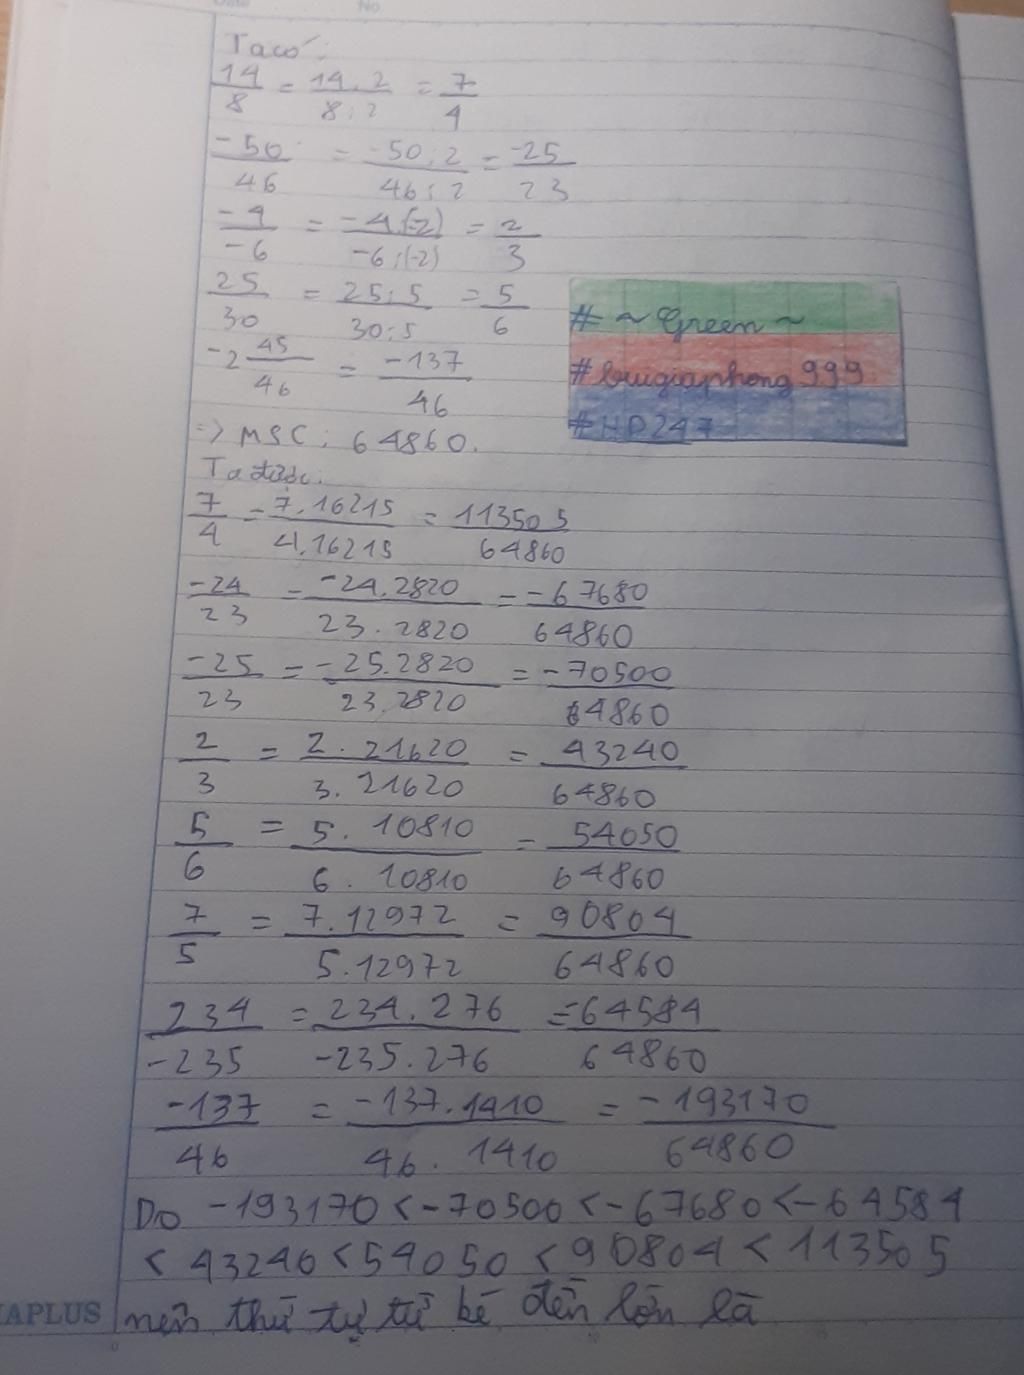 No
Ta có:
14/8 = 14:2/8:2 = 7/4
-50/46 = -50:2/46:2 = -25/23
-4/-6 = -4:(-2)/-6:(-2) = 2/3
25/30 = 25:5/30:5 = 5/6
-2 45/46 = -137/46
=> MSC: 64860.
# ~ Green ~
# luugiaphong 999
# HP247
Ta được:
7/4 = 7.16215/4.16215 = 113505/64860
-24/23 = -24.2820/23.2820 = -67680/64860
-25/23 = -25.2820/23.2820 = -70500/64860
2/3 = 2.21620/3.21620 = 43240/64860
5/6 = 5.10810/6.10810 = 54050/64860
7/5 = 7.12972/5.12972 = 90804/64860
234/-235 = 234.276/-235.276 = -64584/64860
-137/46 = -137.1410/46.1410 = -193170/64860
Do -193170 < -70500 < -67680 < -64584
< 43240 < 54050 < 90804 < 113505
nên thứ tự từ bé đến lớn là
APLUS